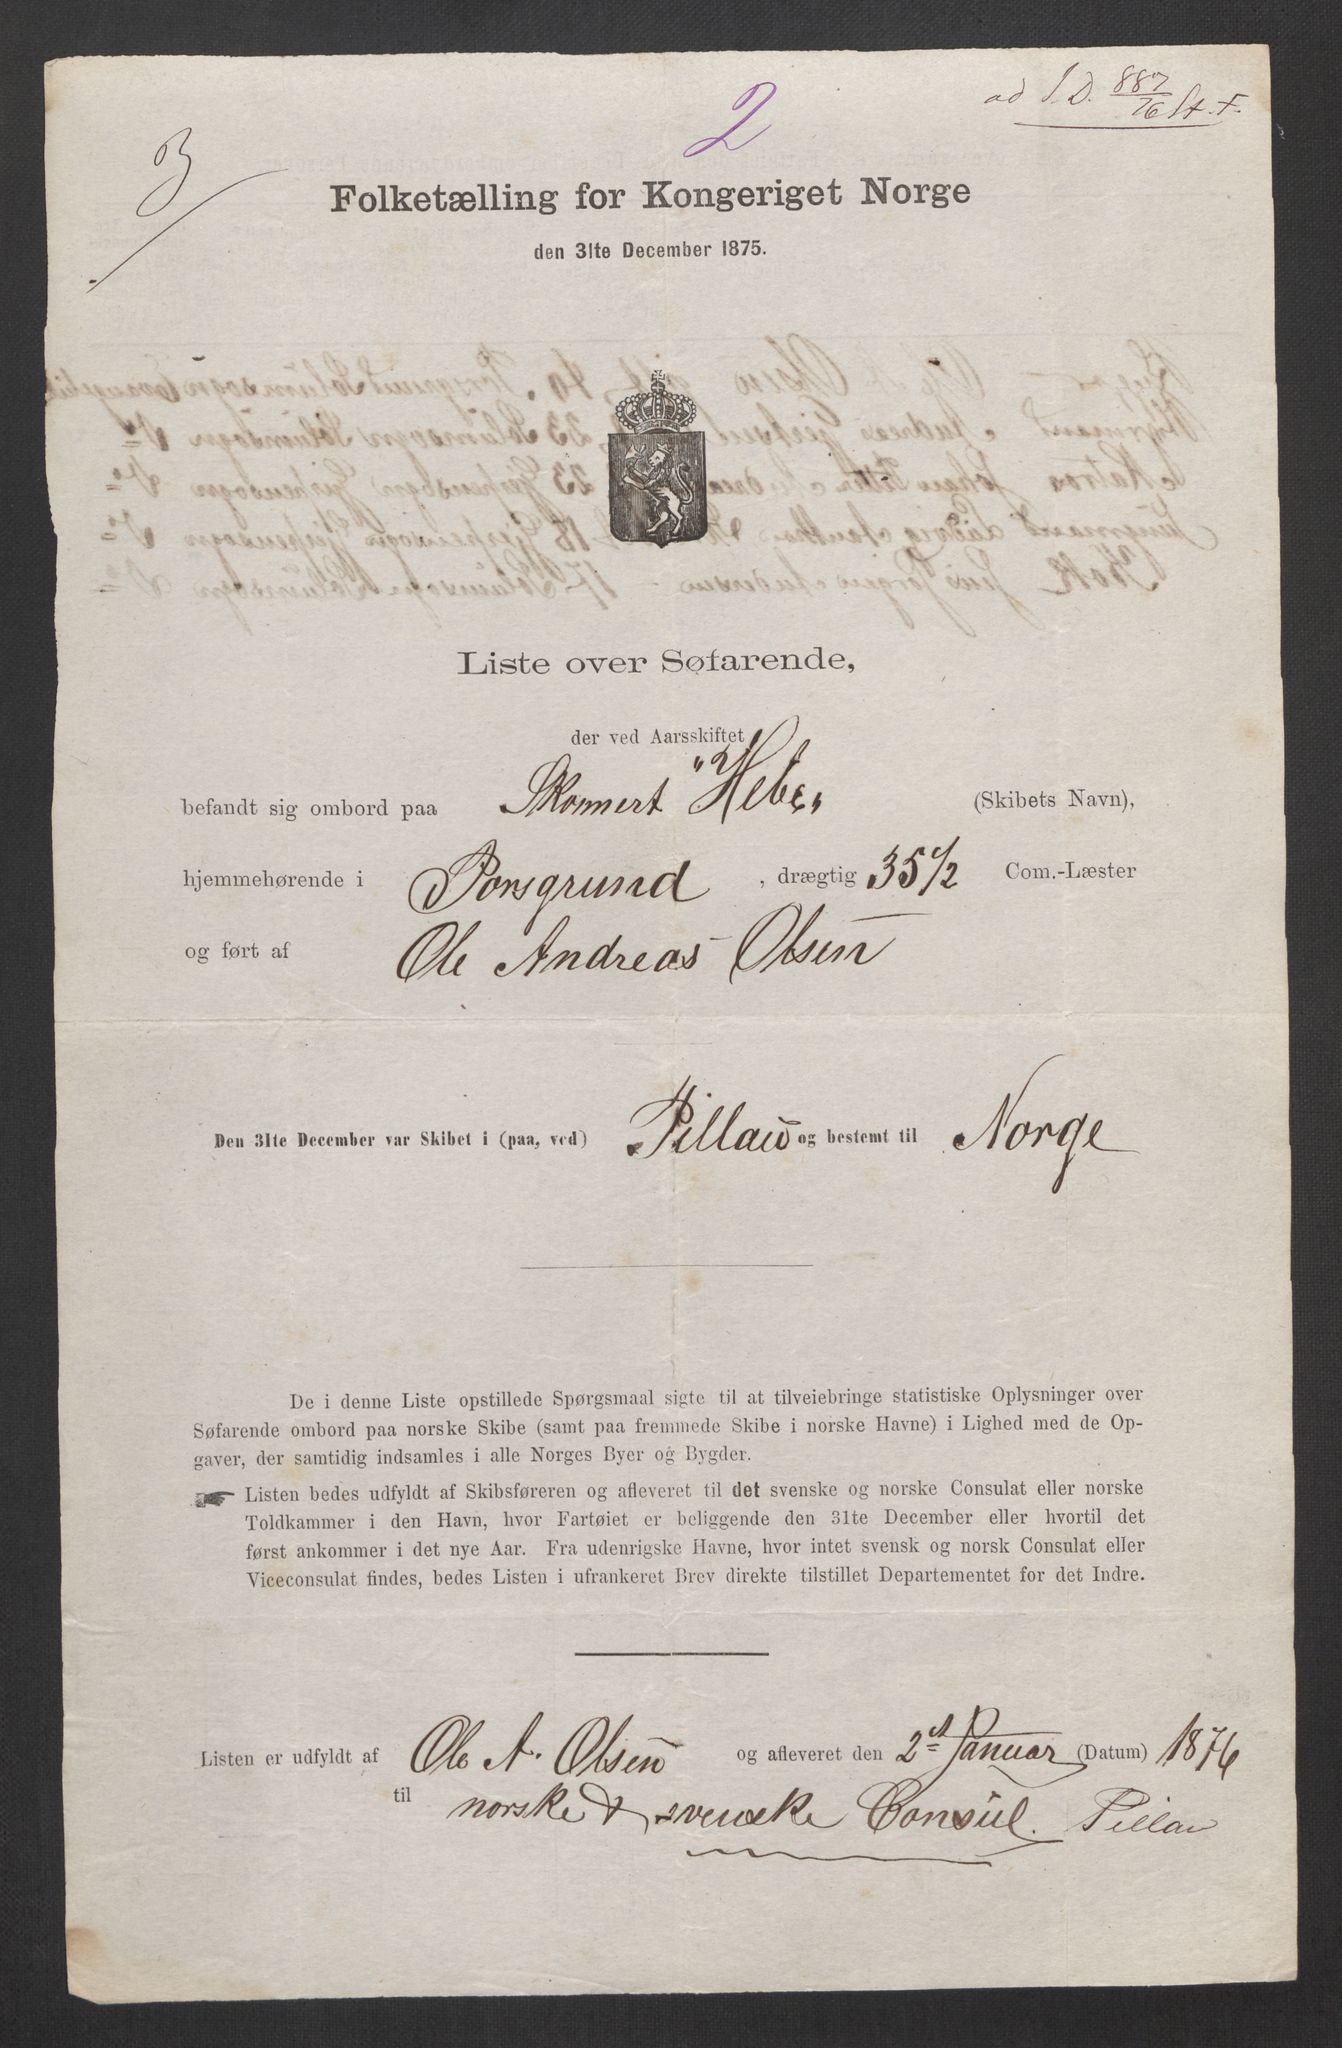 ad J.D. 887/76 St. F.
2
3
Folketælling for Kongeriget Norge
den 31te December 1875.
Liste over Søfarende,
der ved Aarsskiftet
befandt sig ombord paa Skonnert "Hebe" (Skibets Navn),
hjemmehørende i Porsgrund, drægtig 35 1/2 Com.-Læster
og ført af Ole Andreas Olsen
Den 31te December var Skibet i (paa, ved) Pillau og bestemt til Norge
De i denne Liste opstillede Spørgsmaal sigte til at tilveiebringe statistiske Oplysninger over
Søfarende ombord paa norske Skibe (samt paa fremmede Skibe i norske Havne) i Lighed med de Op-
gaver, der samtidig indsamles i alle Norges Byer og Bygder.
Listen bedes udfyldt af Skibsføreren og afleveret til det svenske og norske Consulat eller norske
Toldkammer i den Havn, hvor Fartøiet er beliggende den 31te December eller hvortil det
først ankommer i det nye Aar. Fra udenrigske Havne, hvor intet svensk og norsk Consulat eller
Viceconsulat findes, bedes Listen i ufrankeret Brev direkte tilstillet Departementet for det Indre.
Listen er udfyldt af Ole A. Olsen og afleveret den 2et Januar (Datum) 1876
til norske & svenske Consul. Pillau